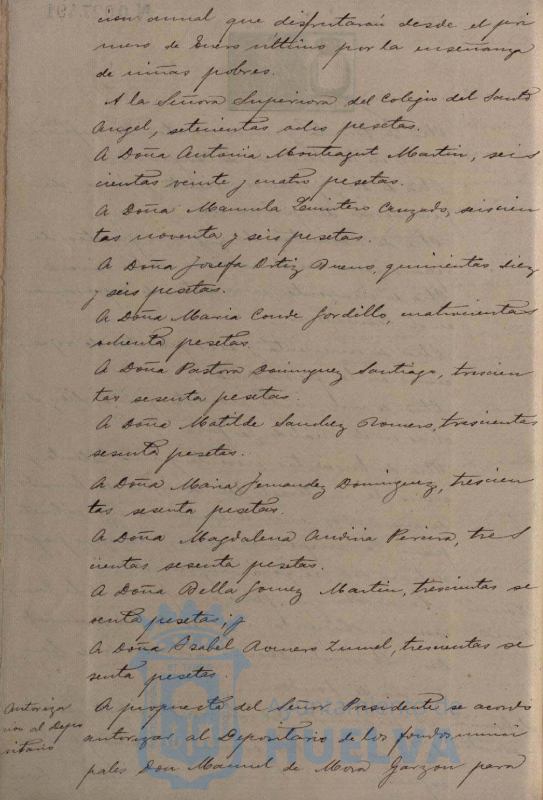 cion anual que disfrutarán desde el pri
mero de Enero último por la enseñanza
de niñas pobres.
A la Señora Superiora del Colegio del Santo
Angel, setecientas ocho pesetas.
A Doña Antonia Montagut Martin, seis
cientas veinte y cuatro pesetas.
A Doña Manuela Quintero Cruzado, seiscien
tas noventa y seis pesetas.
A Doña Josefa Ortiz Bueno, quinientas diez
y seis pesetas.
A Doña Maria Conde Gordillo, cuatrocientas
ochenta pesetas.
A Doña Pastora Dominguez Santiago, trescien
tas sesenta pesetas.
A Doña Matilde Sanchez Romero, trescientas
sesenta pesetas.
A Doña Maria Fernandez Dominguez, trescien
tas sesenta pesetas.
A Doña Magdalena Pereira, tres
cientas sesenta pesetas.
A Doña Bella Gomez Martin, trescientas se
senta pesetas; y
A Doña Isabel Romero Zumel, trescientas se
senta pesetas.
Autoriza
cion al Depo
sitario
A propuesta del Señor Presidente se acordó
autorizar al Depositario de los fondos muni
cipales Don Manuel de Mora Garzon para
HUELVA